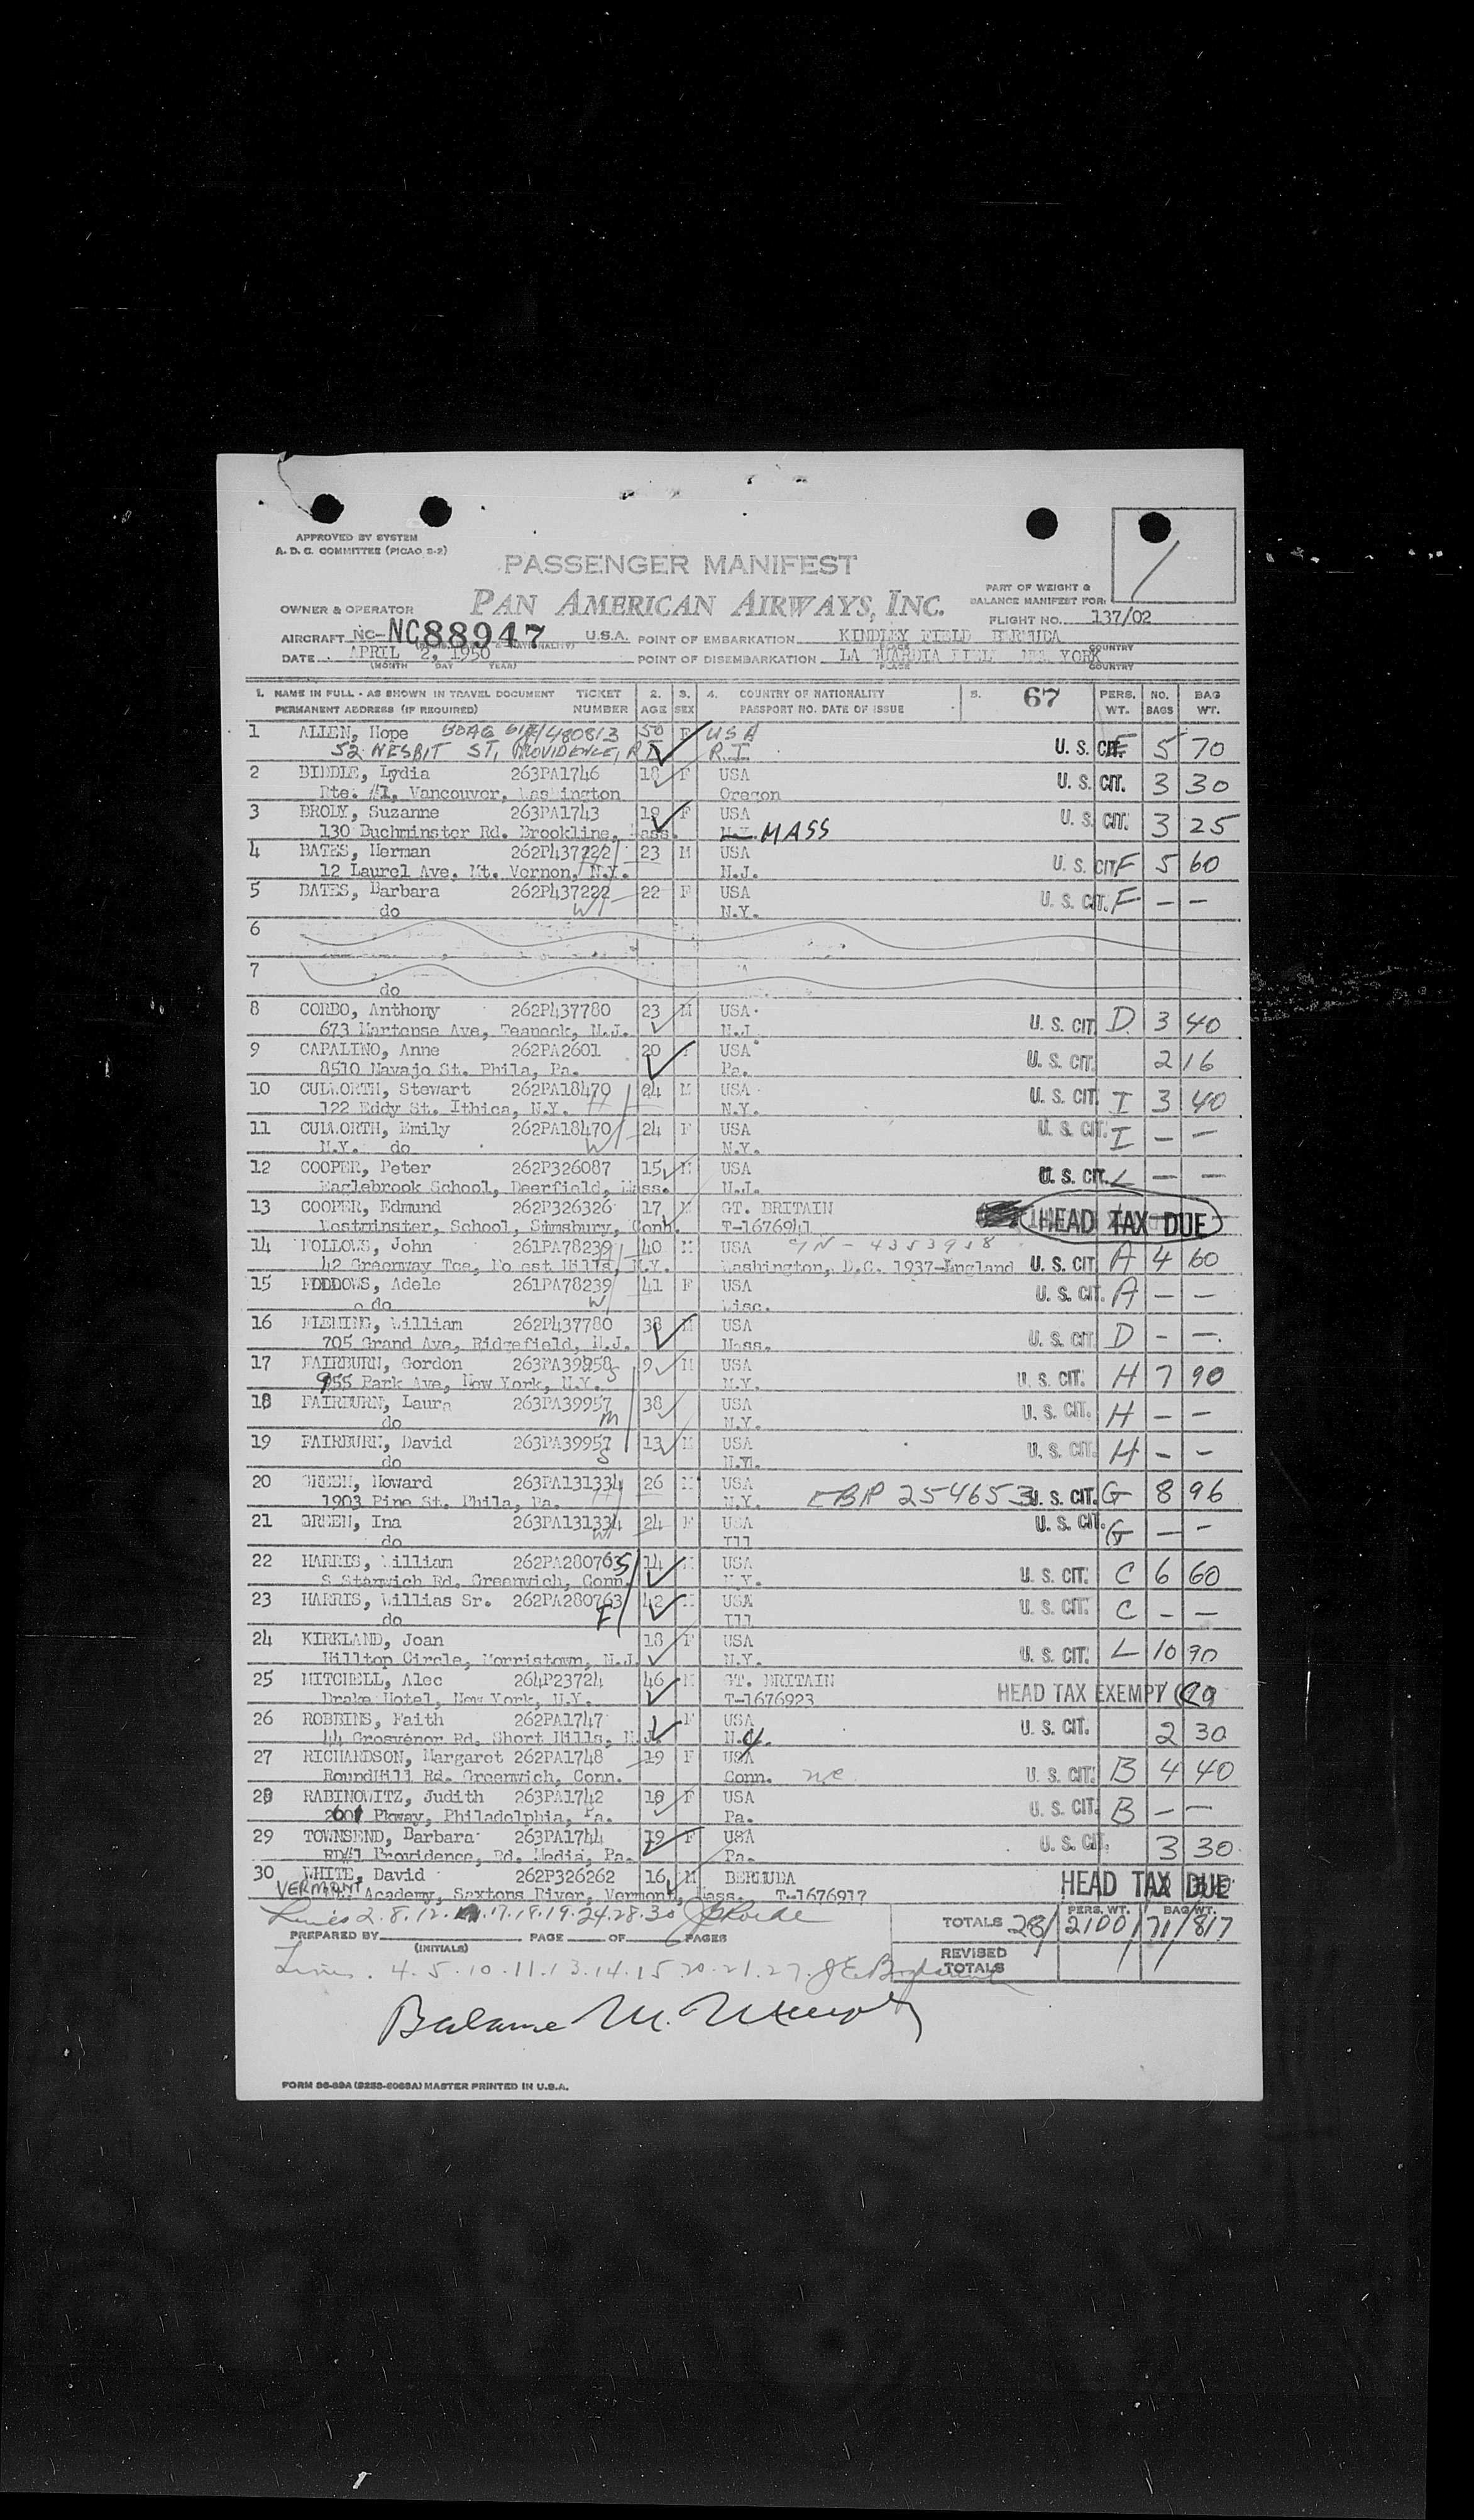 APPROVED BY SYSTEM
A. D. C. COMMITTEE (PICAO S-2)
PASSENGER MANIFEST
PAN AMERICAN AIRWAYS, INC.
PART OF WEIGHT &
BALANCE MANIFEST FOR:
OWNER & OPERATOR
FLIGHT NO. 137/02
AIRCRAFT NC- NC88947 U.S.A. POINT OF EMBARKATION KINDLEY FIELD BERMUDA
DATE APRIL 2, 1950 POINT OF DISEMBARKATION LA GUARDIA FIELD NEW YORK
(MONTH DAY YEAR) PLACE COUNTRY
1. NAME IN FULL - AS SHOWN IN TRAVEL DOCUMENT TICKET 2. 3. 4. COUNTRY OF NATIONALITY 5. 67 PERS. NO. BAG
PERMANENT ADDRESS (IF REQUIRED) NUMBER AGE SEX PASSPORT NO. DATE OF ISSUE WT. BAGS WT.
1 ALLEN, Hope 50 F USA
52 NESBIT ST, PROVIDENCE, R I R.I. U.S. CIT. 5 70
2 BIDDLE, Lydia 263PA1746 18 F USA U. S. CIT. 3 30
Rte. #1, Vancouver, Washington Oregon
3 BRODY, Suzanne 263PA1743 18 F USA U. S. CIT. 3 25
130 Buchminster Rd. Brookline, Mass. N.Y. MASS
4 BATES, Herman 262P437222 23 M USA U. S. CIT F 5 60
12 Laurel Ave. Mt. Vernon, N.Y. N.J.
5 BATES, Barbara 262P437222 22 F USA U. S. CIT. F — —
do W N.Y.
6
7
do
8 CORBO, Anthony 262P437780 23 M USA U. S. CIT. D 3 40
673 Martense Ave, Teaneck, N.J. N.J.
9 CAPALINO, Anne 262PA2601 20 USA U. S. CIT. 2 16
8510 Navajo St. Phila, Pa. Pa.
10 CULWORTH, Stewart 262PA18470 24 M USA U. S. CIT. I 3 40
122 Eddy St. Ithica, N.Y. H N.Y.
11 CULWORTH, Emily 262PA18470 24 F USA U. S. CIT. I — —
N.Y. do W N.Y.
12 COOPER, Peter 262P326087 15 M USA U. S. CIT. L — —
Eaglebrook School, Deerfield, Mass. N.J.
13 COOPER, Edmund 262P326326 17 M GT. BRITAIN HEAD TAX DUE
Westminster, School, Simsbury, Conn. T-1676941
14 FOLLOWS, John 261PA78239 40 M USA
42 Greenway Tce, Forest Hills, N.Y. Washington, D.C. 1937-England U. S. CIT. A 4 60
15 FOLLOWS, Adele 261PA78239 41 F USA U. S. CIT. A — —
do W Wisc.
16 FLEMING, William 262P437780 38 M USA U. S. CIT. D - —
705 Grand Ave, Ridgefield, N.J. Mass.
17 FAIRBURN, Gordon 263PA39958 9 M USA U. S. CIT. H 7 90
955 Park Ave, New York, N.Y. N.Y.
18 FAIRBURN, Laura 263PA39957 38 USA U. S. CIT. H — —
do M N.Y.
19 FAIRBURN, David 263PA39957 13 M USA U. S. CIT. H — -
do S N.Y.
20 GREEN, Howard 263PA131334 26 M USA U. S. CIT. G 8 96
1903 Pine St. Phila, Pa. N.Y. 254653
21 GREEN, Ina 263PA131334 24 F USA U. S. CIT. G — -
do W Ill
22 HARRIS, William 262PA280763 S 14 M USA U. S. CIT. C 6 60
S Stanwich Rd. Greenwich, Conn. N.Y.
23 HARRIS, Willias Sr. 262PA280763 42 M USA U. S. CIT. C - —
do F Ill
24 KIRKLAND, Joan 18 F USA U. S. CIT. L 10 90
Hilltop Circle, Morristown, N.J. N.Y.
25 MITCHELL, Alec 264P23724 46 M GT. BRITAIN HEAD TAX EXEMPT
Drake Hotel, New York, N.Y. T-1676923
26 ROBBINS, Faith 262PA1747 F USA U. S. CIT. 2 30
44 Grosvenor Rd. Short Hills, N.J.
27 RICHARDSON, Margaret 262PA1748 19 F USA U. S. CIT. B 4 40
RoundHill Rd. Greenwich, Conn. Conn.
28 RABINOWITZ, Judith 263PA1742 18 F USA U. S. CIT. B — —
2601 Pkway, Philadelphia, Pa. Pa.
29 TOWNSEND, Barbara 263PA1744 19 F USA U. S. CIT. 3 30
RD#1 Providence, Rd. Media, Pa. Pa.
30 WHITE, David 262P326262 16 M BERMUDA HEAD TAX DUE
VERMONT Academy, Saxtons River, Vermont, Mass. T-1676917
Lines 2.8.12. 17.18.19.24.28.30
TOTALS 28 PERS. WT. 2100 71 BAG WT. 817
PREPARED BY (INITIALS) PAGE OF PAGES
REVISED TOTALS
Lines. 4.5.10.11.13.14.15.20.21.27.
Balance M.
FORM 36-89A (9258-6068A) MASTER PRINTED IN U.S.A.